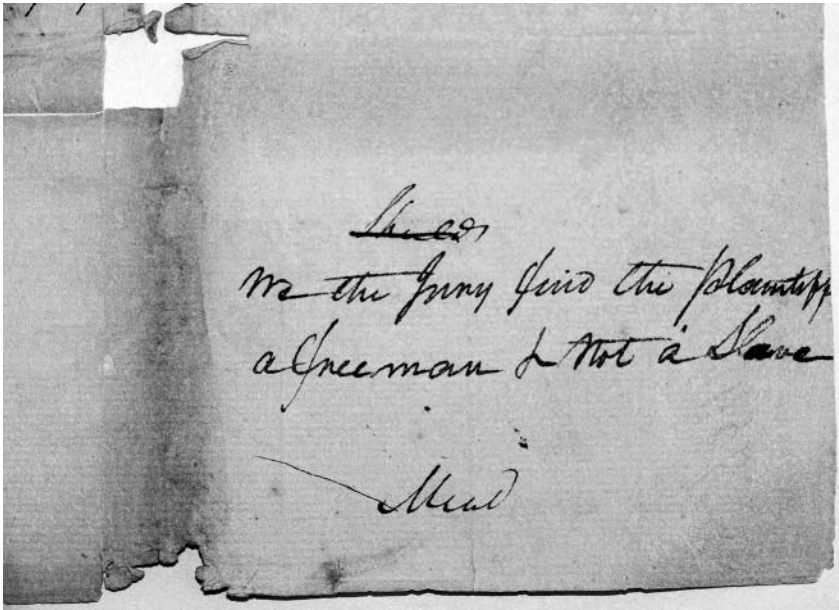 We the Jury find the Plaintiff
a freeman & Not a Slave